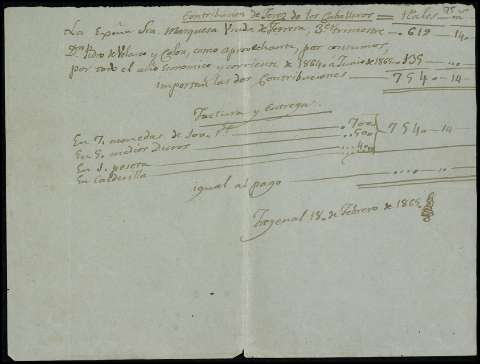 Contribucion de Jerez de los Caballeros = Reales
La Exma Sra Marquesa Viuda de Ferrera, 3er trimestre — 619 — 14.
Dn. Pedro de Velasco y Colon, como aprovechante, por consumos,
por todo el año economico y corriente de 1864 a Junio de 1865 — 135 — ..
importan las dos Contribuciones 754 .. 14 ..
Factura y entrega.
En 7. monedas de 100. rs — . 700
En 5. medios duros — .. 50. 754 .. 14 ..
En 1. peseta — ... 4..
En Calderilla
igual al pago
Fregenal 18. de Febrero de 1865.